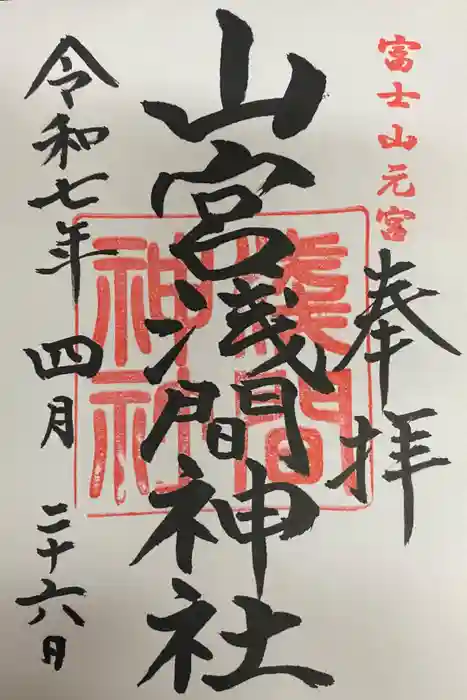 富士山元宮
奉拝
山宮浅間神社
淺間
神社
令和七年
四月
二十六日